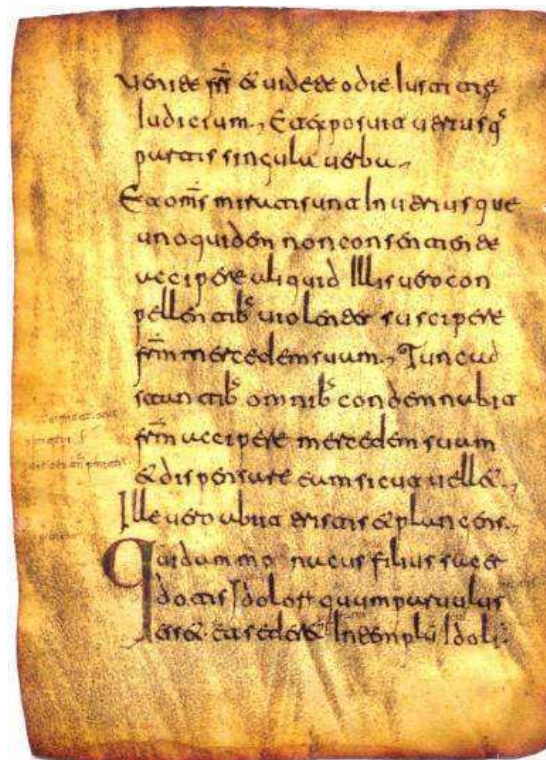 venite frs & videte odie iustitie
iudicium., Et adposuit uersusq
partis singula verba.,
Et oms miratisunt in uersusque
unoquidem non consentiente
accipere aliquid Illis vero con
pellentib; violenter suscipere
frm mercedemsuam., Tuncad
stantib; omnib; condemnabit
frm accipere mercedem suam
& dispensare eamsicut uell&.,
Ille vero abiit tristis & plancens.
Quidammo nacus filius sacer
dotis Idolor quumparuulus
ess& etseder& In templu Idoli